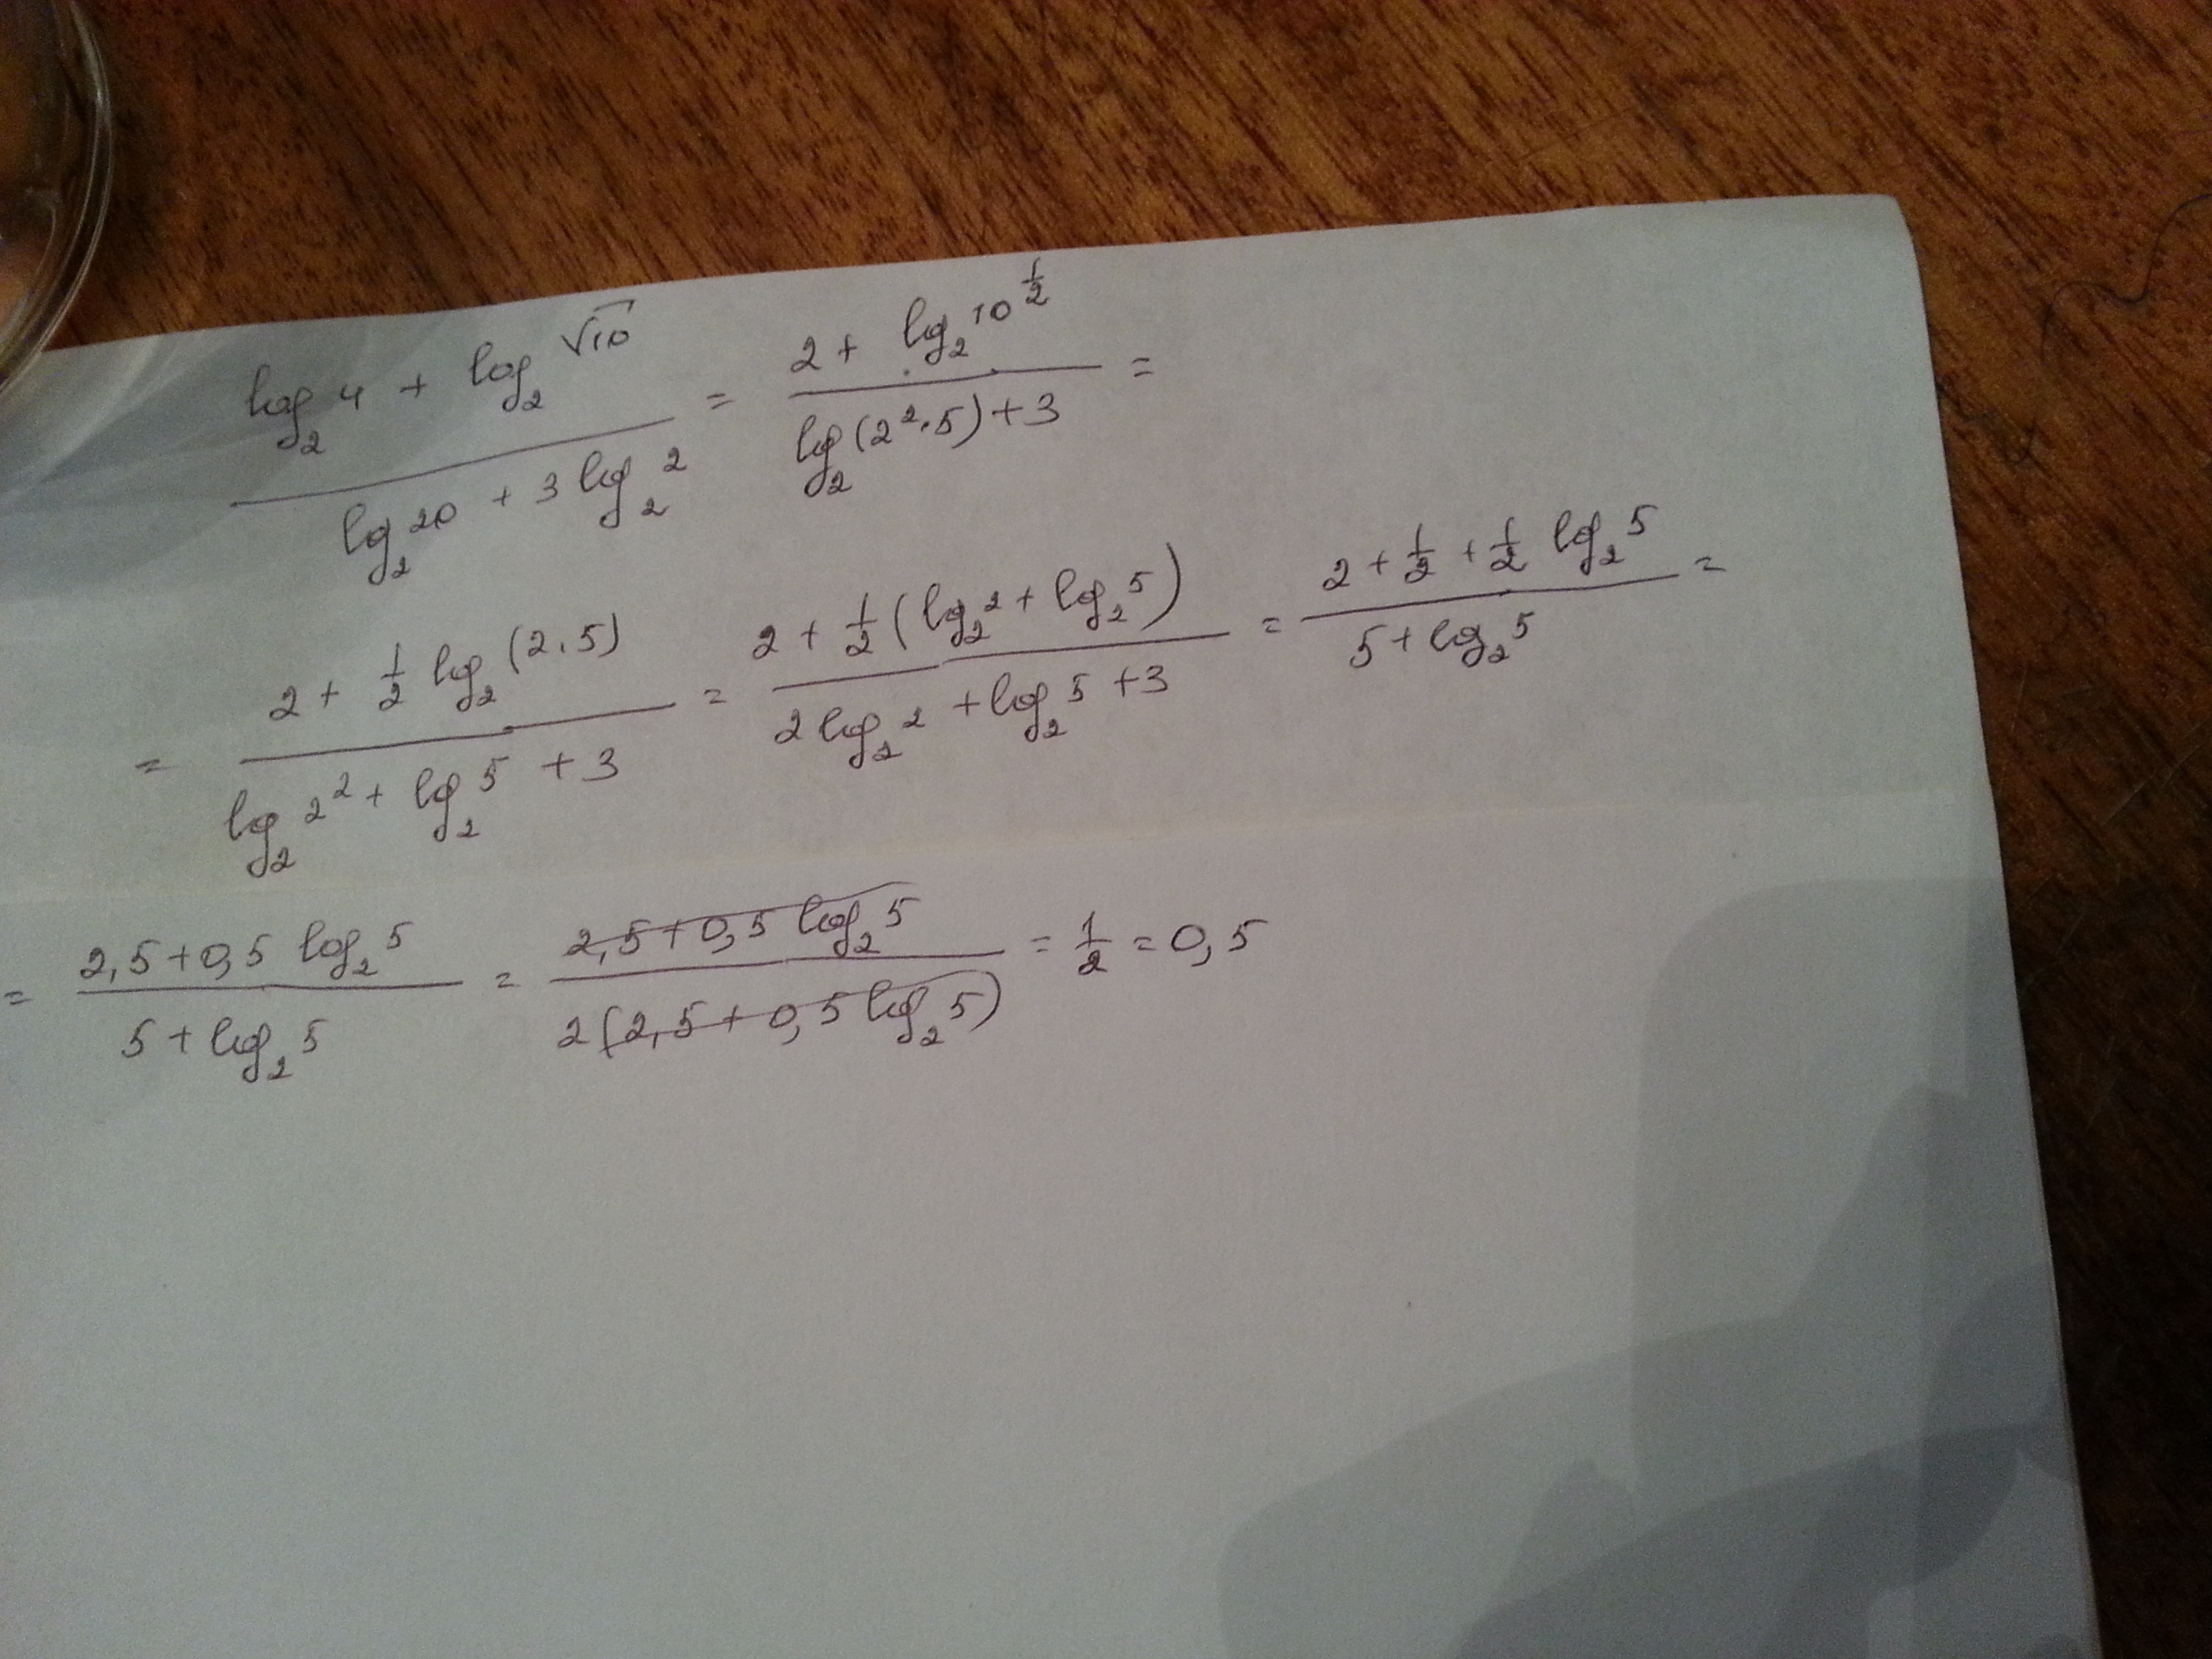 (log₂4 + log₂√10)/(log₂20 + 3log₂2) = (2 + log₂10^(1/2))/(log₂(2²·5) + 3) =
= (2 + 1/2 log₂(2·5))/(log₂2² + log₂5 + 3) = (2 + 1/2(log₂2 + log₂5))/(2log₂2 + log₂5 + 3) = (2 + 1/2 + 1/2 log₂5)/(5 + log₂5) =
= (2,5 + 0,5 log₂5)/(5 + log₂5) = (2,5 + 0,5 log₂5)/(2(2,5 + 0,5 log₂5)) = 1/2 = 0,5